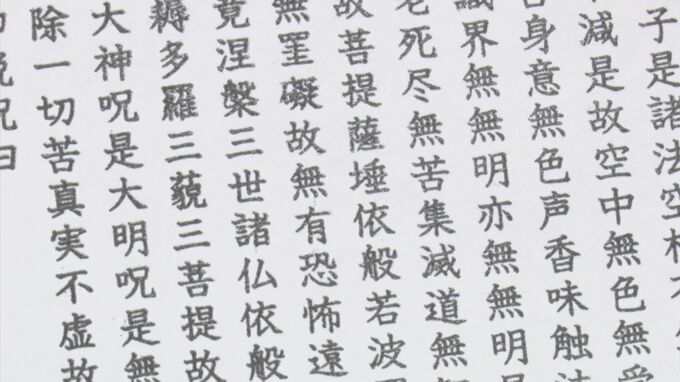 子是諸法空相不
減是故空中無色無受
舌身意無色声香味触法
識界無無明亦無無明
老死尽無苦集滅道無
故菩提薩埵依般若波
無罣礙故無有恐怖遠
竟涅槃三世諸仏依般
耨多羅三藐三菩提故
大神呪是大明呪是無
除一切苦真実不虚故
説呪曰